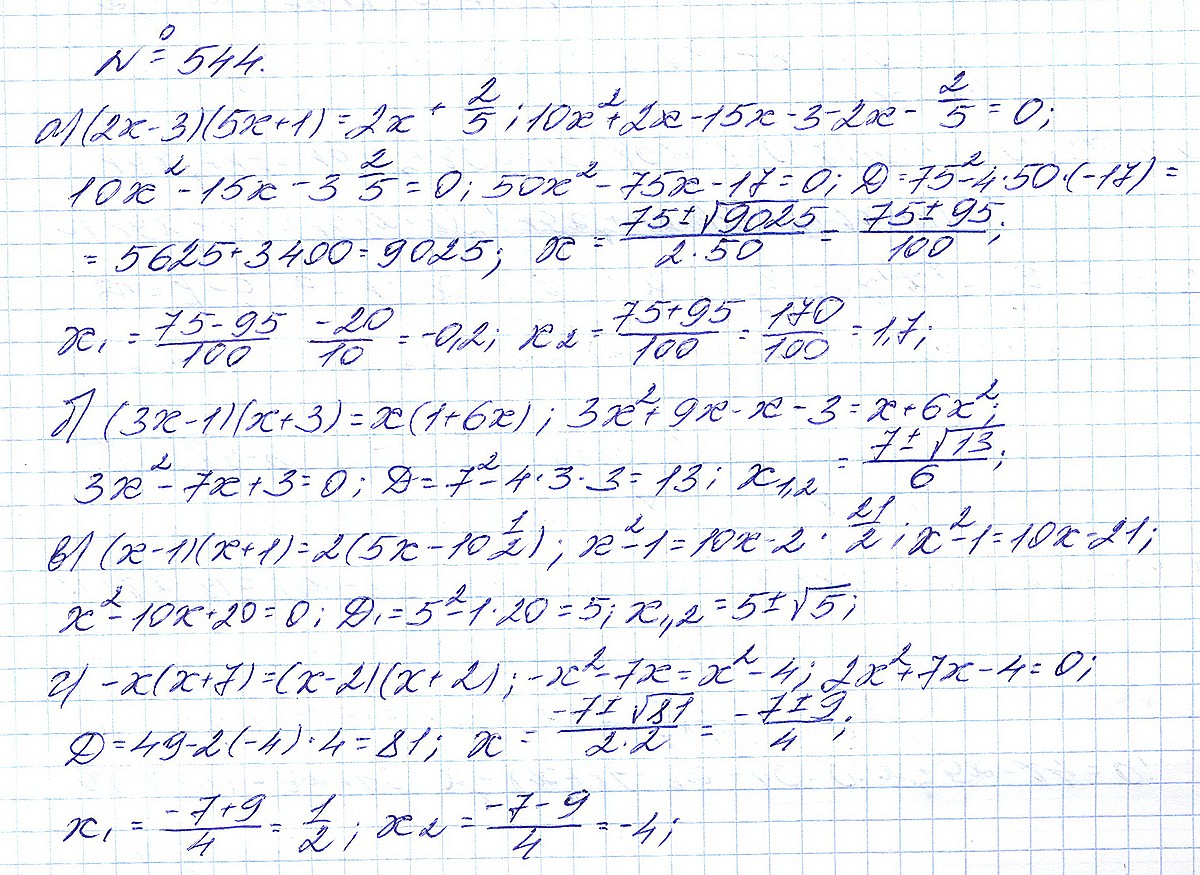 № 544.
а) (2x-3)(5x+1)=2x + 2/5; 10x²+2x-15x-3-2x- 2/5 = 0;
10x²-15x-3 2/5 = 0; 50x²-75x-17=0; D=75²-4·50·(-17) =
= 5625+3400=9025; x = (75±√9025)/(2·50) = (75±95)/100;
x₁ = (75-95)/100 (-20)/10 = -0,2; x₂ = (75+95)/100 = 170/100 = 1,7;
б) (3x-1)(x+3)=x(1+6x); 3x²+9x-x-3=x+6x²;
3x²-7x+3=0; D=7²-4·3·3=13; x₁,₂ = (7±√13)/6;
в) (x-1)(x+1)=2(5x-10 1/2); x²-1=10x-2· 21/2; x²-1=10x-21;
x²-10x+20=0; D₁=5²-1·20=5; x₁,₂=5±√5;
г) -x(x+7)=(x-2)(x+2); -x²-7x=x²-4; 2x²+7x-4=0;
D=49-2(-4)·4=81; x = (-7±√81)/(2·2) = (-7±9)/4;
x₁ = (-7+9)/4 = 1/2; x₂ = (-7-9)/4 = -4;